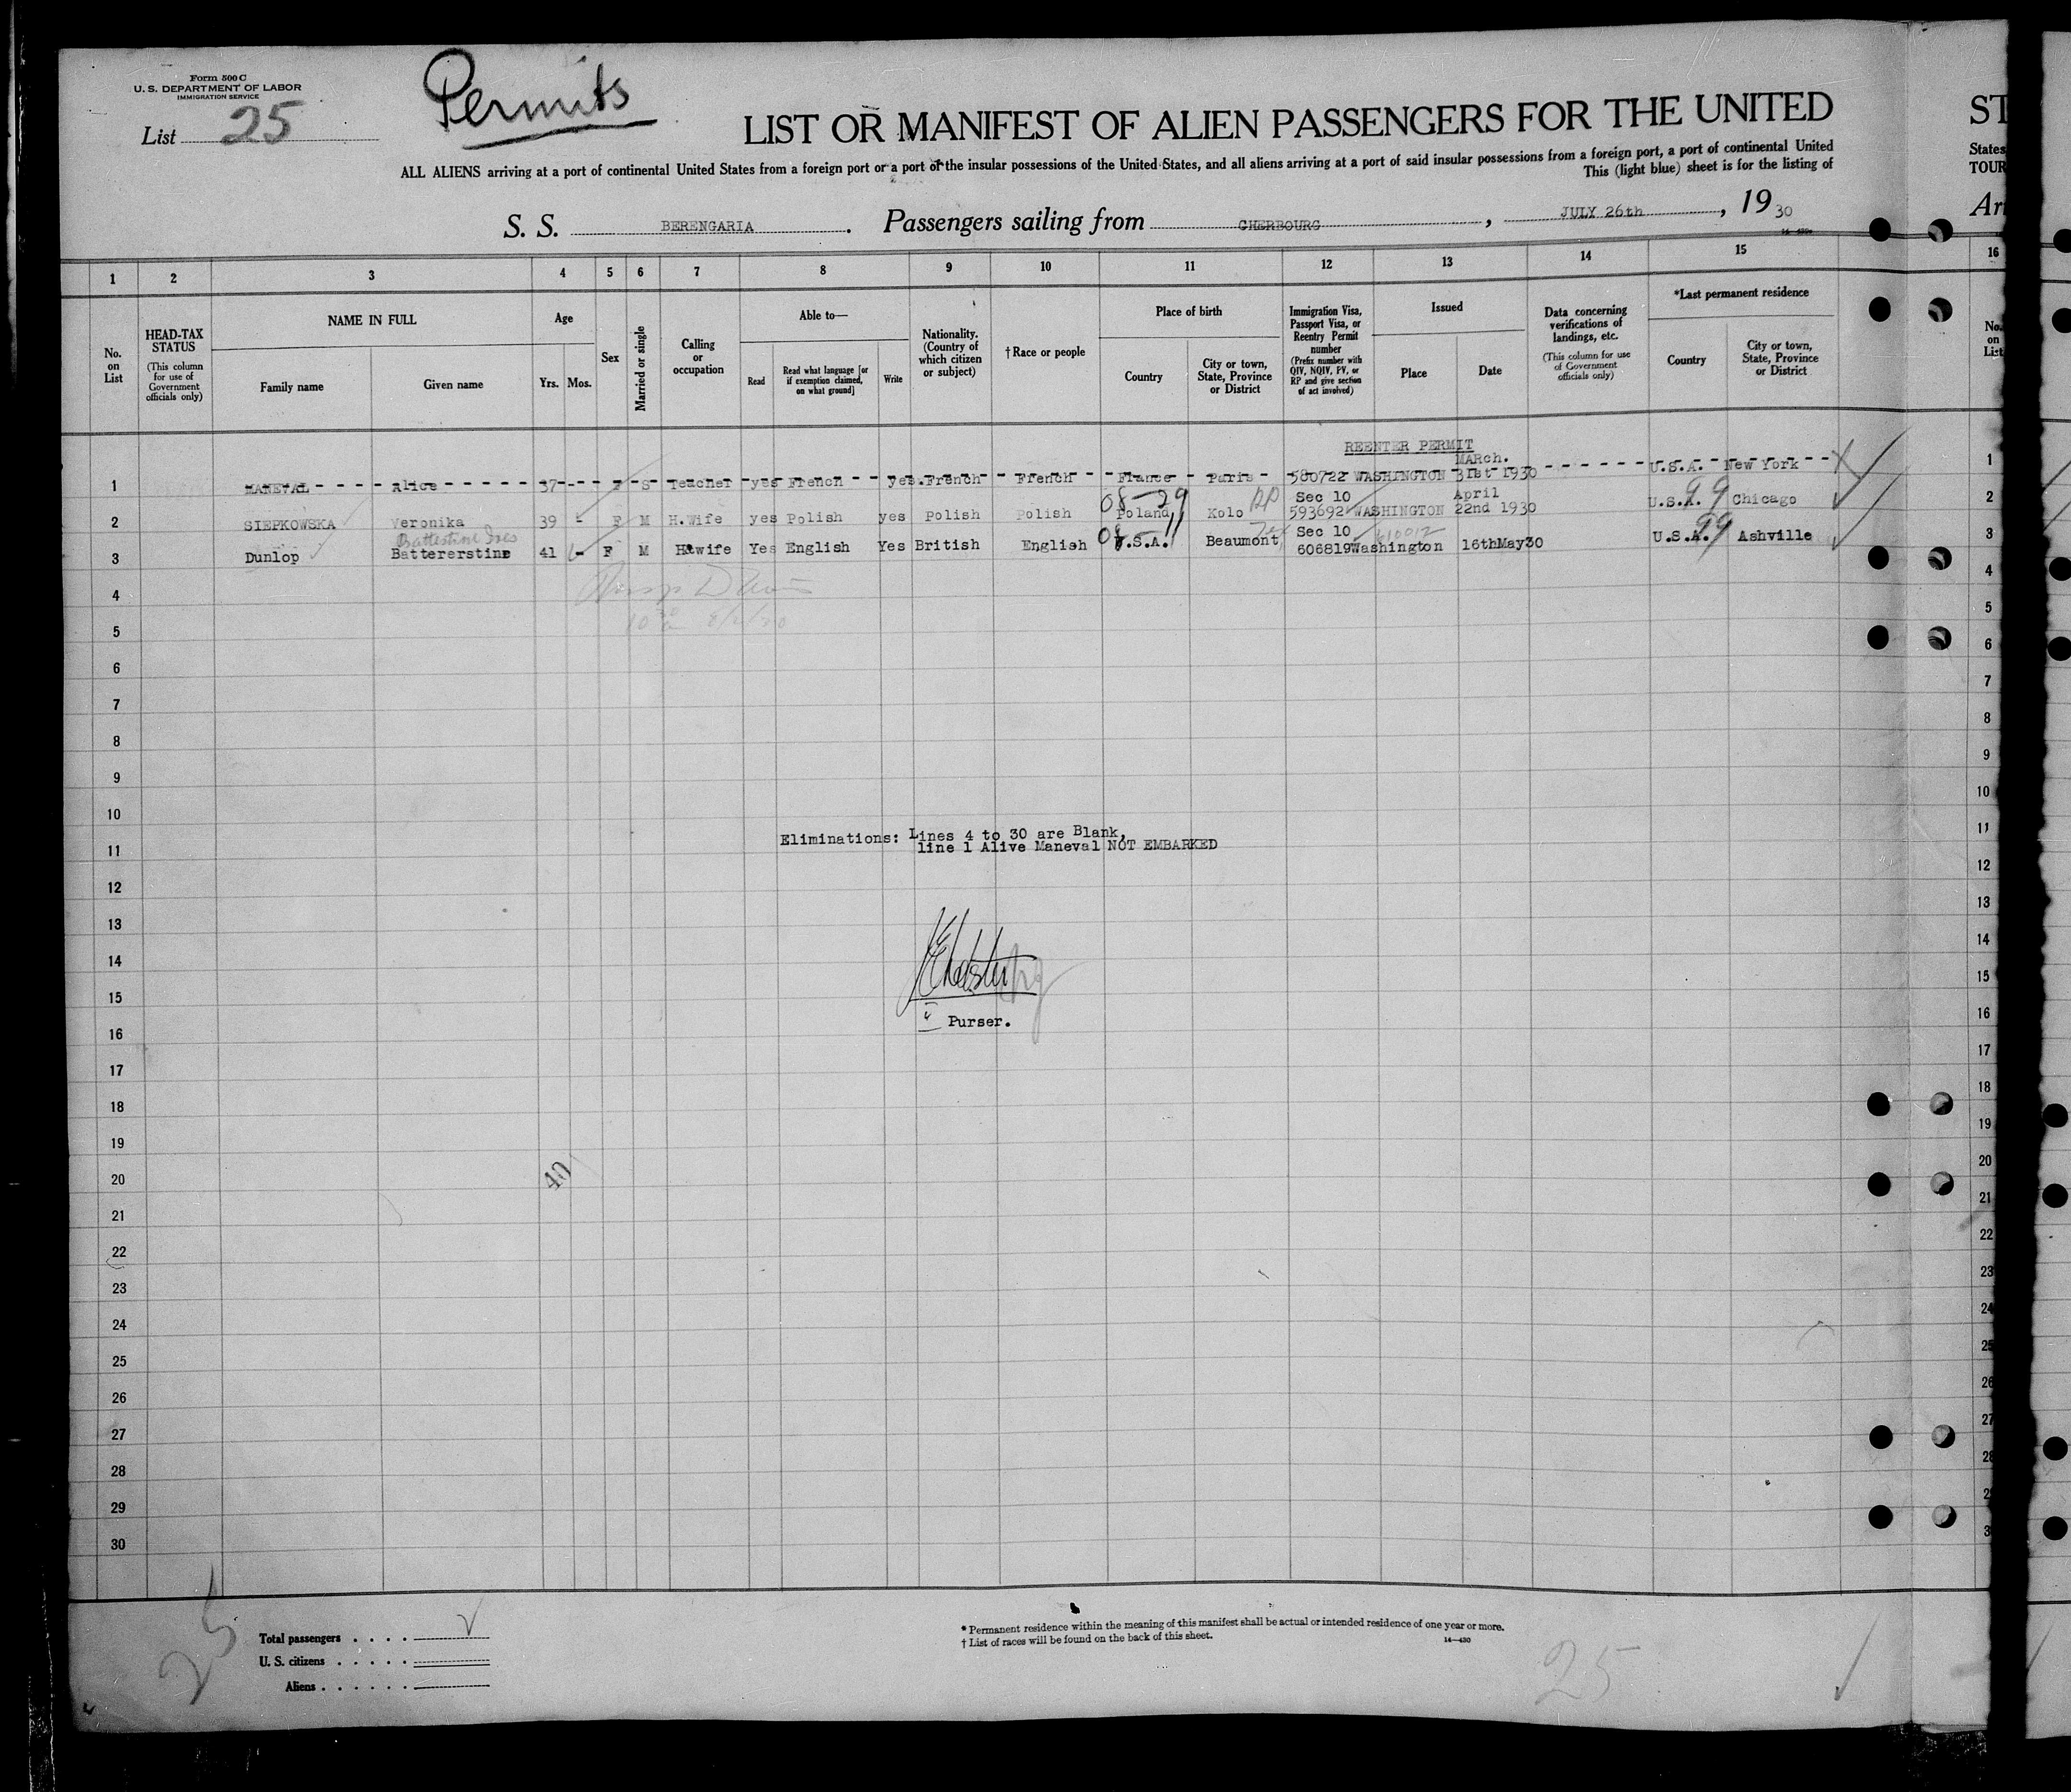 Form 500 C
U. S. DEPARTMENT OF LABOR
IMMIGRATION SERVICE
List 25
Permits
LIST OR MANIFEST OF ALIEN PASSENGERS FOR THE UNITED
ALL ALIENS arriving at a port of continental United States from a foreign port or a port of the insular possessions of the United States, and all aliens arriving at a port of said insular possessions from a foreign port, a port of continental United
This (light blue) sheet is for the listing of
S. S. BERENGARIA. Passengers sailing from CHERBOURG, JULY 26th, 1930
ST
States
TOUR
Arr
1 2 3 4 5 6 7 8 9 10 11 12 13 14 15 16
No. on List
HEAD-TAX STATUS (This column for use of Government officials only)
NAME IN FULL
Family name
Given name
Age
Yrs. Mos.
Sex
Married or single
Calling or occupation
Able to—
Read
Read what language [or if exemption claimed, on what ground]
Write
Nationality. (Country of which citizen or subject)
† Race or people
Place of birth
Country
City or town, State, Province or District
Immigration Visa, Passport Visa, or Reentry Permit number (Prefix number with QIV, NQIV, PV, or RP and give section of act involved)
Issued
Place
Date
Data concerning verifications of landings, etc. (This column for use of Government officials only)
*Last permanent residence
Country
City or town, State, Province or District
No. on List
REENTER PERMIT
MARch.
1 MANEVAL Alice 37 F S Teacher yes French yes. French French France Paris 580722 WASHINGTON 31st 1930 U.S.A. New York 1
08-29 RP Sec 10 April 99
2 SIEPKOWSKA Veronika 39 - F M H.Wife yes Polish yes Polish Polish Poland Kolo 593692 WASHINGTON 22nd 1930 U.S.A. Chicago 2
Battestine Sec 10 610012 99
3 Dunlop Battererstine 41 - F M H.wife Yes English Yes British English U.S.A. Beaumont 606819 Washington 16thMay30 U.S.A. Ashville 3
4 4
5 5
6 6
7 7
8 8
9 9
10 10
Eliminations: Lines 4 to 30 are Blank,
line 1 Alive Maneval NOT EMBARKED
11 11
12 12
13 13
14 14
15 15
Purser.
16 16
17 17
18 18
19 19
40
20 20
21 21
22 22
23 23
24 24
25 25
26 26
27 27
28 28
29 2
30 3
25
Total passengers . . . .
U. S. citizens . . . . .
Aliens . . . . . .
* Permanent residence within the meaning of this manifest shall be actual or intended residence of one year or more.
† List of races will be found on the back of this sheet.
14—430
25